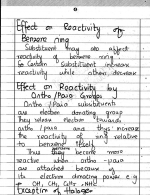 Effect on Reactivity of
benzene ring
Substituent may also affect
reactivity of benzene ring
So Certain Substituent increase
reactivity while others decrease
Effect on Reactivity by
Ortho / Para Groups
Ortho / Para substituents
are electron donating group
They release electron towards
ortho / para and thus increase
the reactivity of ring relative
to benzene
Thus they become more
reactive when ortho - para
are attached because of
its electron donating power e.g
OH, CH3, C2H5, NH2
Exception of Halogen